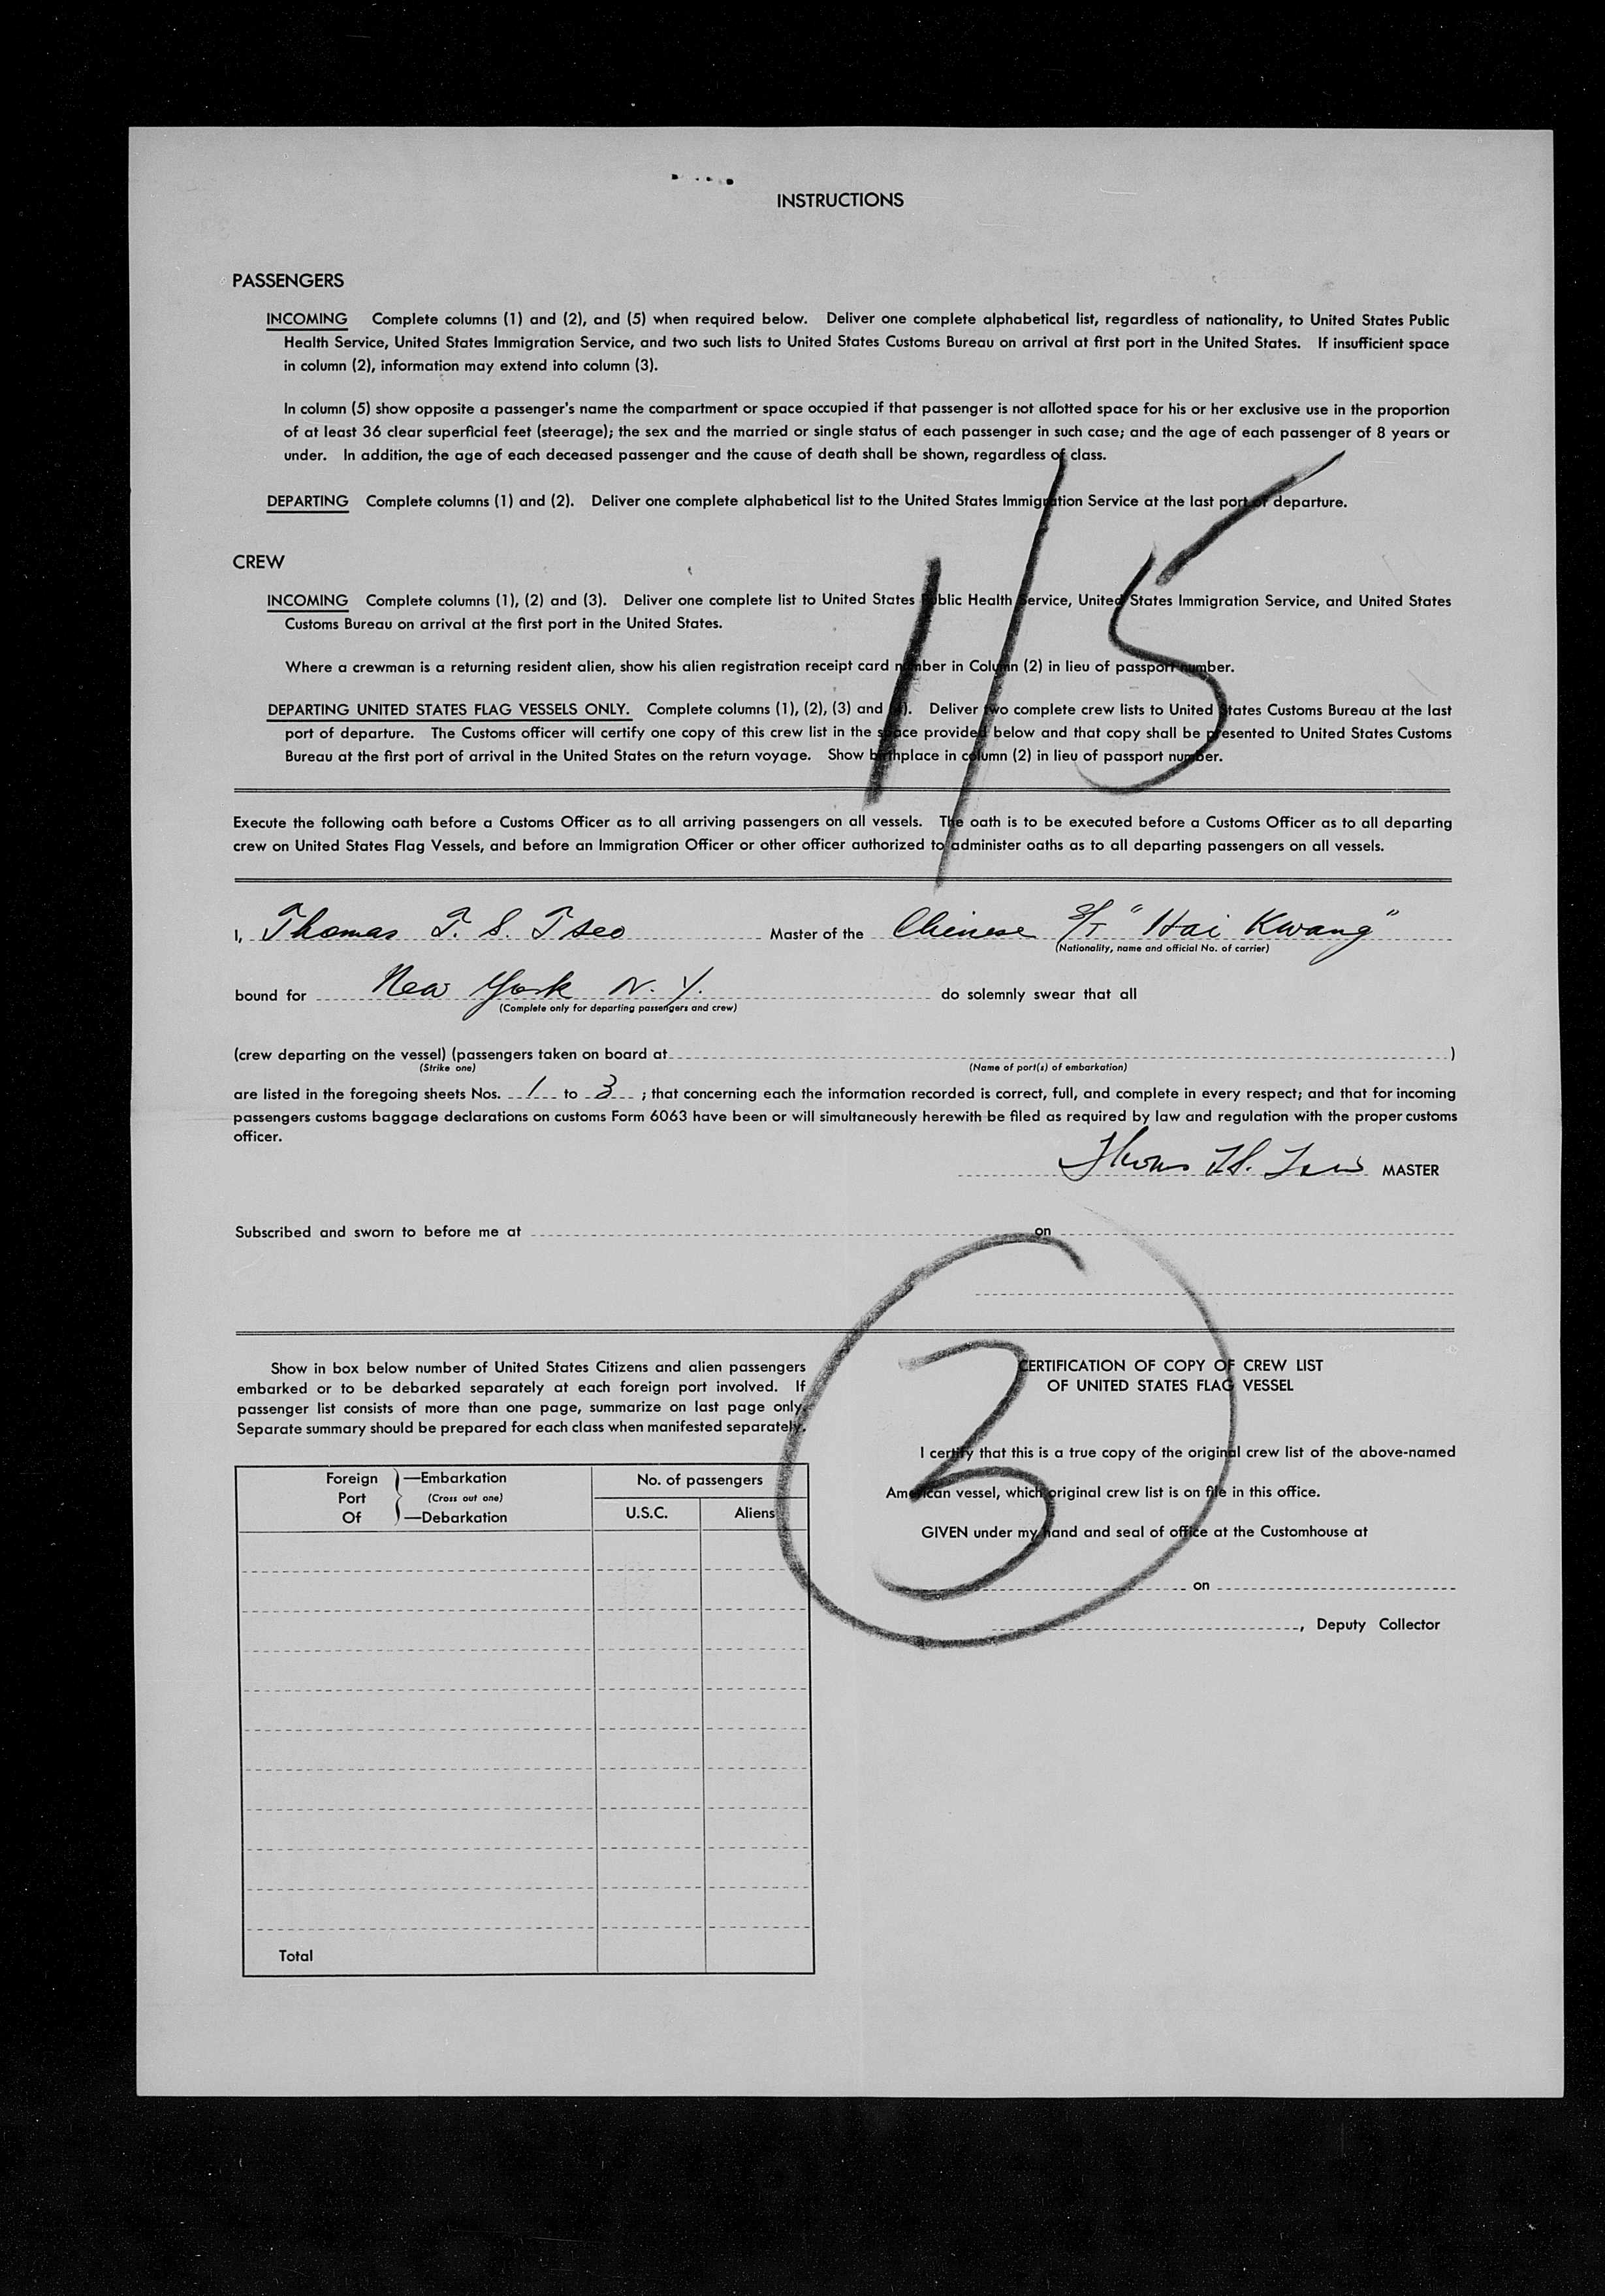 INSTRUCTIONS
PASSENGERS
INCOMING Complete columns (1) and (2), and (5) when required below. Deliver one complete alphabetical list, regardless of nationality, to United States Public
Health Service, United States Immigration Service, and two such lists to United States Customs Bureau on arrival at first port in the United States. If insufficient space
in column (2), information may extend into column (3).
In column (5) show opposite a passenger's name the compartment or space occupied if that passenger is not allotted space for his or her exclusive use in the proportion
of at least 36 clear superficial feet (steerage); the sex and the married or single status of each passenger in such case; and the age of each passenger of 8 years or
under. In addition, the age of each deceased passenger and the cause of death shall be shown, regardless of class.
DEPARTING Complete columns (1) and (2). Deliver one complete alphabetical list to the United States Immigration Service at the last port of departure.
1/5
CREW
INCOMING Complete columns (1), (2) and (3). Deliver one complete list to United States Public Health Service, United States Immigration Service, and United States
Customs Bureau on arrival at the first port in the United States.
Where a crewman is a returning resident alien, show his alien registration receipt card number in Column (2) in lieu of passport number.
DEPARTING UNITED STATES FLAG VESSELS ONLY. Complete columns (1), (2), (3) and (4). Deliver two complete crew lists to United States Customs Bureau at the last
port of departure. The Customs officer will certify one copy of this crew list in the space provided below and that copy shall be presented to United States Customs
Bureau at the first port of arrival in the United States on the return voyage. Show birthplace in column (2) in lieu of passport number.
Execute the following oath before a Customs Officer as to all arriving passengers on all vessels. The oath is to be executed before a Customs Officer as to all departing
crew on United States Flag Vessels, and before an Immigration Officer or other officer authorized to administer oaths as to all departing passengers on all vessels.
I, Thomas T. S. Tseo Master of the Chinese S/T "Hai Kwang"
(Nationality, name and official No. of carrier)
bound for New York N. Y. do solemnly swear that all
(Complete only for departing passengers and crew)
(crew departing on the vessel) (passengers taken on board at )
(Strike one) (Name of port(s) of embarkation)
are listed in the foregoing sheets Nos. 1 to 3 ; that concerning each the information recorded is correct, full, and complete in every respect; and that for incoming
passengers customs baggage declarations on customs Form 6063 have been or will simultaneously herewith be filed as required by law and regulation with the proper customs
officer.
MASTER
Subscribed and sworn to before me at on
3
Show in box below number of United States Citizens and alien passengers
embarked or to be debarked separately at each foreign port involved. If
passenger list consists of more than one page, summarize on last page only.
Separate summary should be prepared for each class when manifested separately.
Foreign Port Of —Embarkation (Cross out one) —Debarkation
No. of passengers
U.S.C. Aliens
Total
CERTIFICATION OF COPY OF CREW LIST
OF UNITED STATES FLAG VESSEL
I certify that this is a true copy of the original crew list of the above-named
American vessel, which original crew list is on file in this office.
GIVEN under my hand and seal of office at the Customhouse at
on
, Deputy Collector